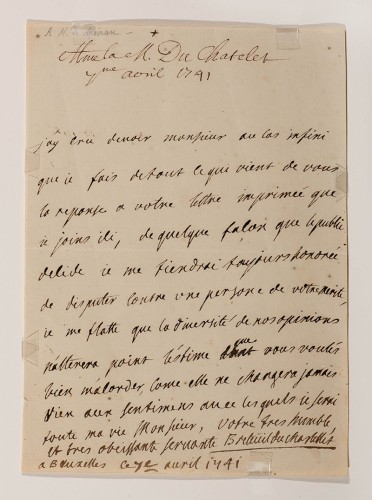 Mme la M. Du Chatelet
7me avril 1741
jay crû devoir monsieur au cas infini
que je fais de tout ce qui vient de vous
la reponse a votre lettre imprimeé que
je joins ici, de quelque façon que le public
decide je me tiendrai toujours honoreé
de disputer contre une persone de votre merite,
je me flatte que la diversité de nos opinions
n'alterera point l'estime que vous voulés
bien m'acorder, come elle ne changera jamais
rien aux sentimens avec lesquels je serai
toute ma vie Monsieur, votre tres humble
et tres obeissante servante Breteuil du chastellet
a Bruxelles ce 7e avril 1741